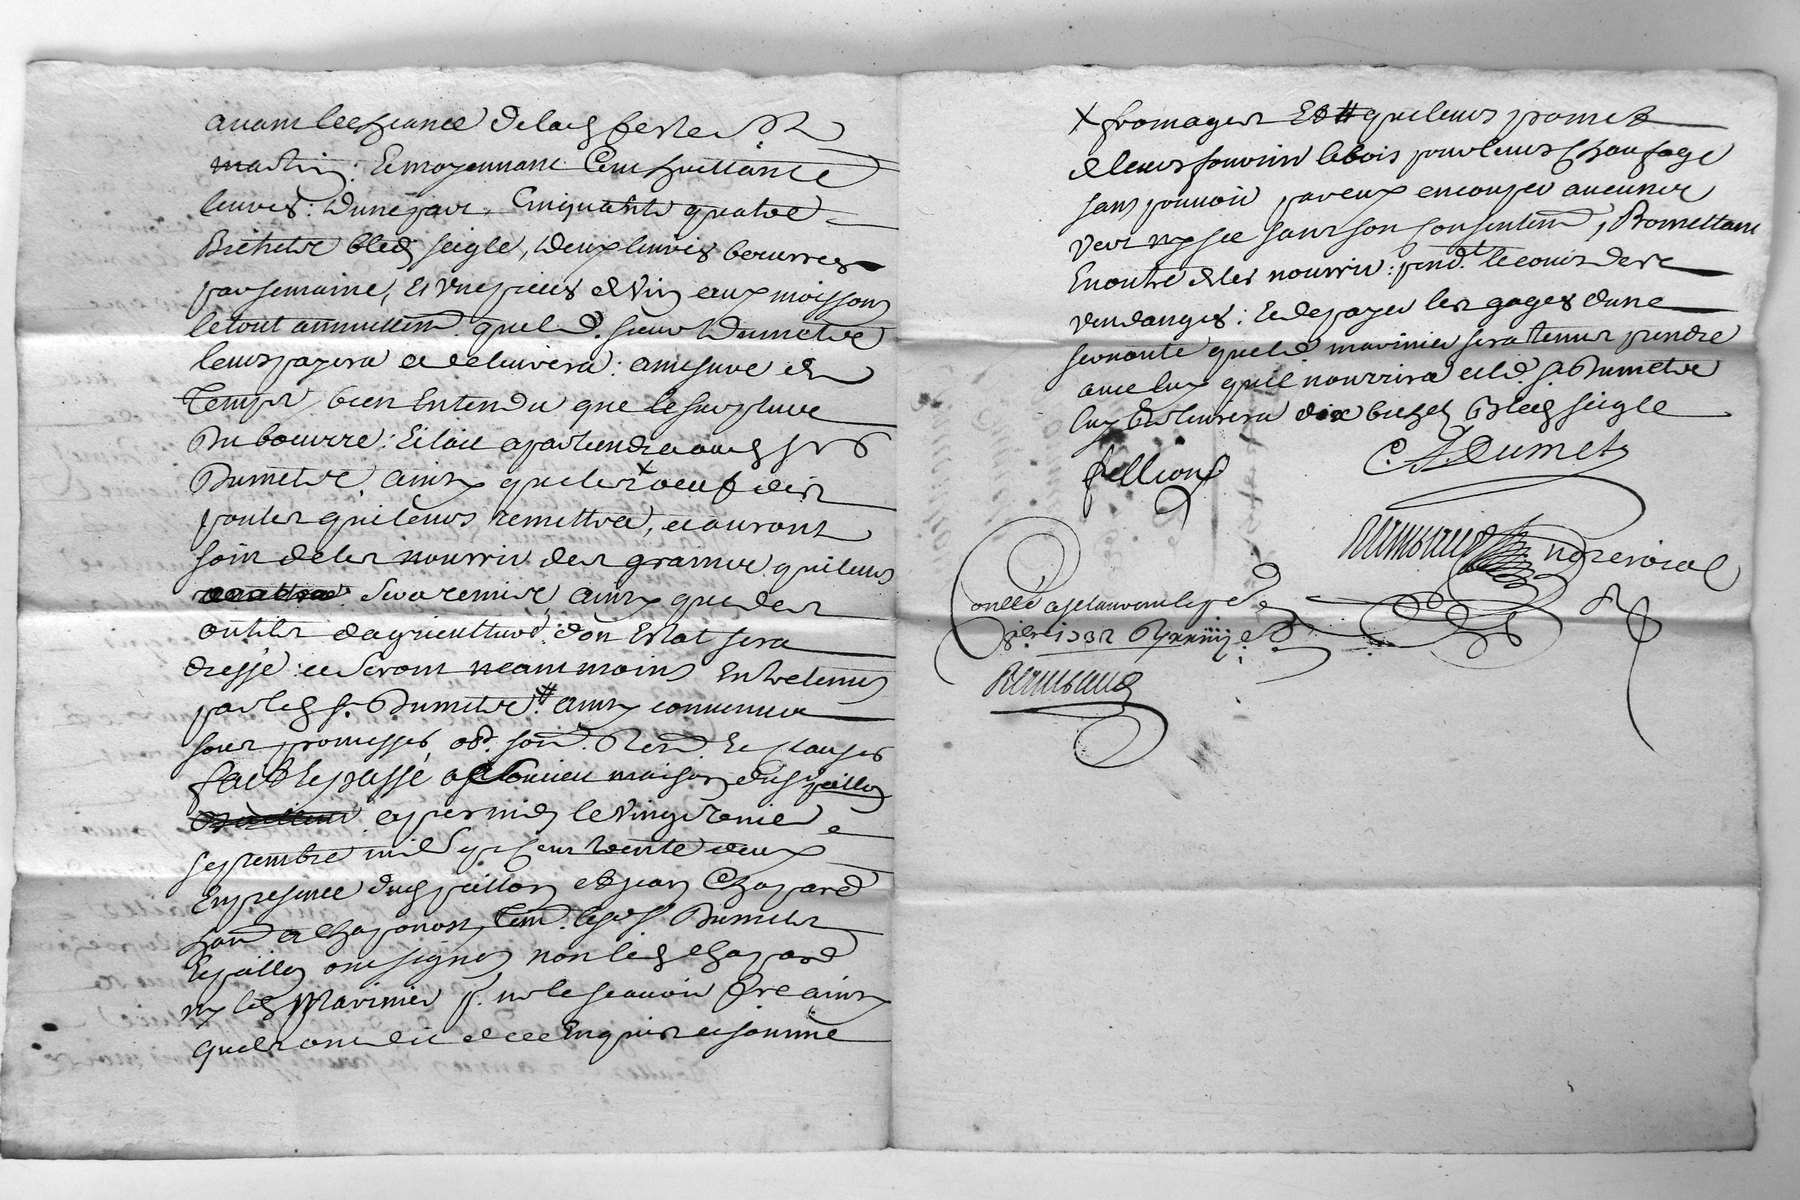 avant lescheance de lad feste St
martin : Et moyennant Cent huittante
livres : d'une part, Cinquante quatre
Bichetz bled seigle, deux livres beurres
par semaine, Et une piece de Vin aux moissons
le tout annuellemt. que led. sieur Dumetz
leurs payera et delivrera : a mesure du
Temps, bien Entendu que le surplus
Du beurre : Et lait apartiendra aud Sr
Dumetz, ainsy que les x oeufs des
poules qu'il leurs remettra, et auront
soin de les nourrir des graines qui leurs
seront remis, ainsy que des
outils d'agriculture, d'on Estat sera
dressé : et seront neammoins Entretenus
par led Sr. Dumetz # ainsy convenu
sous promesses obd. soumd. Renond Et clauses
fait Et passé a maison dud paillon
apres midy le Vingt
septembre mil sept cent trente deux
En presence dud paillon Et jean Chapard
de Chaponost Temd. led Sr. Dumetz
Et paillon ont signez non led Chapard
ny led Marinier p. ne le scavoir fre ainsy
quils ont dit de ce Enquis et sommé
x fromages Et # que leurs promet
de leurs fournir le bois pour leurs chaufage
sans pouvoir par eux en couper aucunes
ver ny sec sans son consentemt, Promettant
En outre de les nourrir : pendt. le cours des
vendanges : Et de payer les gages d'une
servante que led marinier sera tenus prendre
avec luy qu'il nourrira et led. Sr Dumetz
luy Delivrera dix bichetz Bled seigle
paillon
C. Dumetz
Rimbaud
no.re roial
Conllé a st Lauvent le
1732 R xxiiij s
Rimbaud